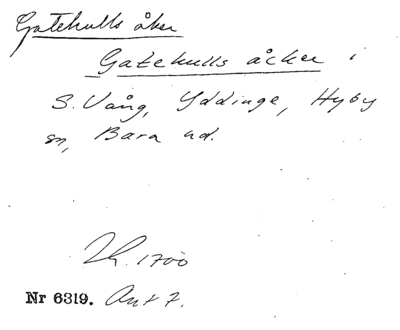 Gatekulls åker
Gatekulls åcker i
S. Vång, Yddinge, Hyby
sn, Bara hd.
Lh. 1700
Nr 6319. Ant 7.